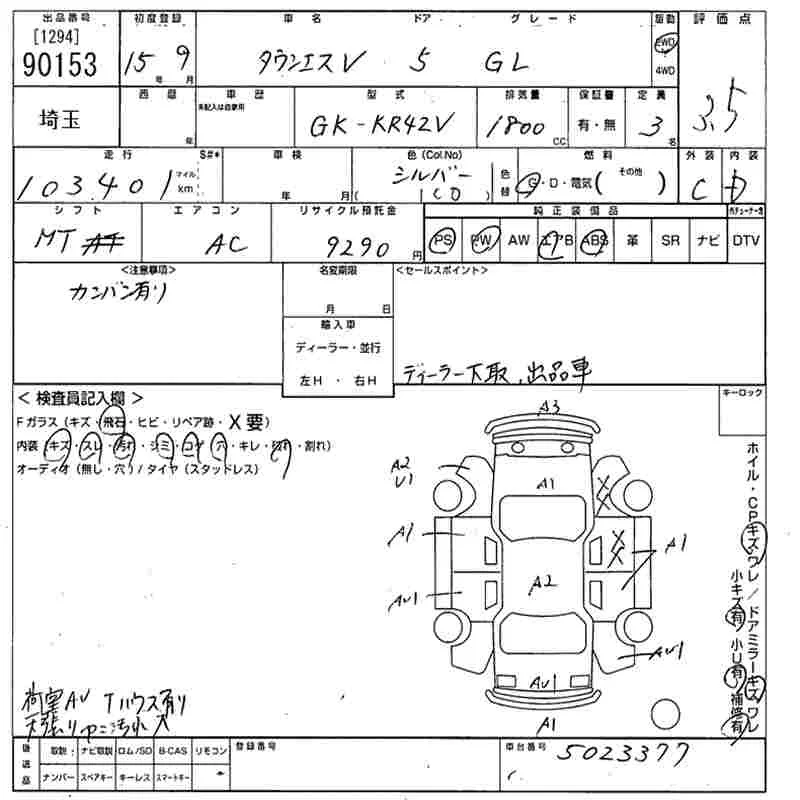 出品番号 初度登録 車名 ドア グレード 駆動 評価点
[1294]
90153 15年 9月 タウンエスV 5 GL 2WD 4WD 3.5
埼玉 西暦 年 車歴 未記入は自家用 型式 排気量 保証書 定員
GK-KR42V 1800 CC 有・無 3名
走行 S#* 車検 色(Col.No) 燃料 外装 内装
103401 マイル km 年 月 シルバー ( ) 色替 G・D・電気( その他 ) C D
シフト エアコン リサイクル預託金 純正装備品
MT AC 9290円 PS PW AW エアB ABS 革 SR ナビ DTV
<注意事項> 名変期限 <セールスポイント>
カンバン有り
月 日
輸入車
ディーラー・並行
左H ・ 右H
ディーラー下取、出品車
< 検査員記入欄 > キーロック
Fガラス(キズ・飛石・ヒビ・リペア跡・X要)
内装(キズ・スレ・汚れ・シミ・コゲ・穴・キレ・切れ・割れ)
オーディオ(無し・穴)/タイヤ(スタッドレス)
A3
A2
U1
A1
XX
A1
XX
A1
A2
AU1
AU1
AU1
A1
ホイル・CPキズ・ワレ/ドアミラーキズ・ワレ
小キズ有 小U有 補修有
荷室AU Tハウス有り
天張りヤニ汚れ 穴
後送品 取説 ナビ取説 ロム/SD B-CAS リモコン 登録番号 車台番号 5023377
ナンバー スペアキー キーレス スマートキー